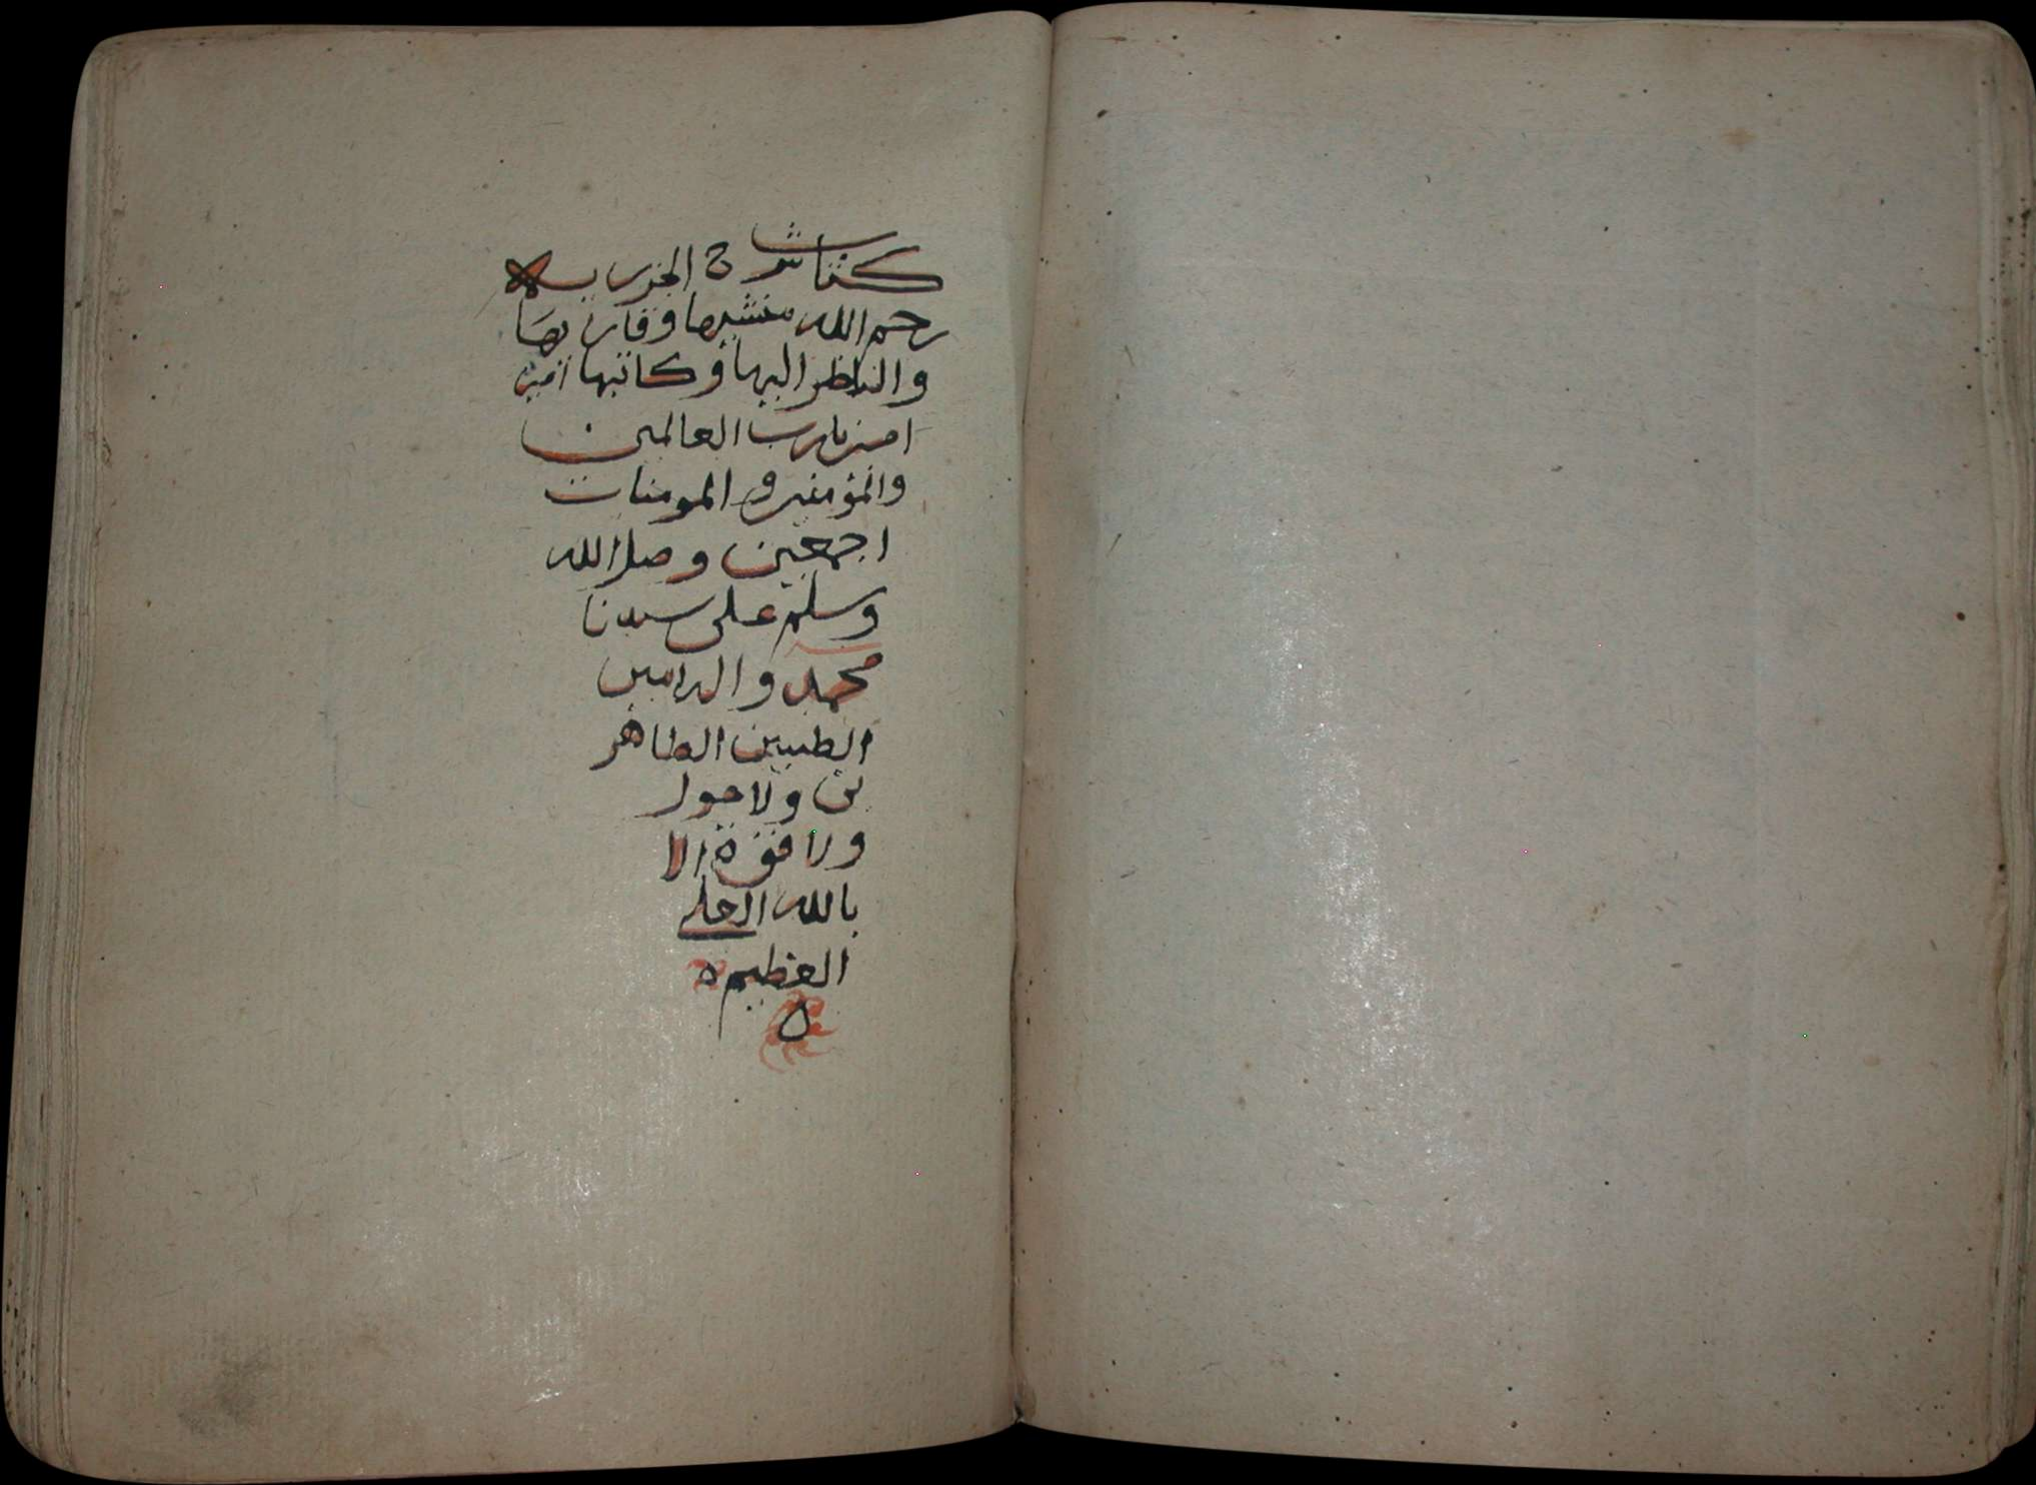 كتاب شرح الجزريه
رحم الله منشيها وقاريها
والناظر اليها وكاتبها امين
امين يارب العالمين
والمؤمنين والمومنات
اجمعين وصلى الله
وسلم على سيدنا
محمد واله امين
الطيبين الطاهر
ين ولا حول
ولا قوة الا
بالله العلي
العظيم ه
ه